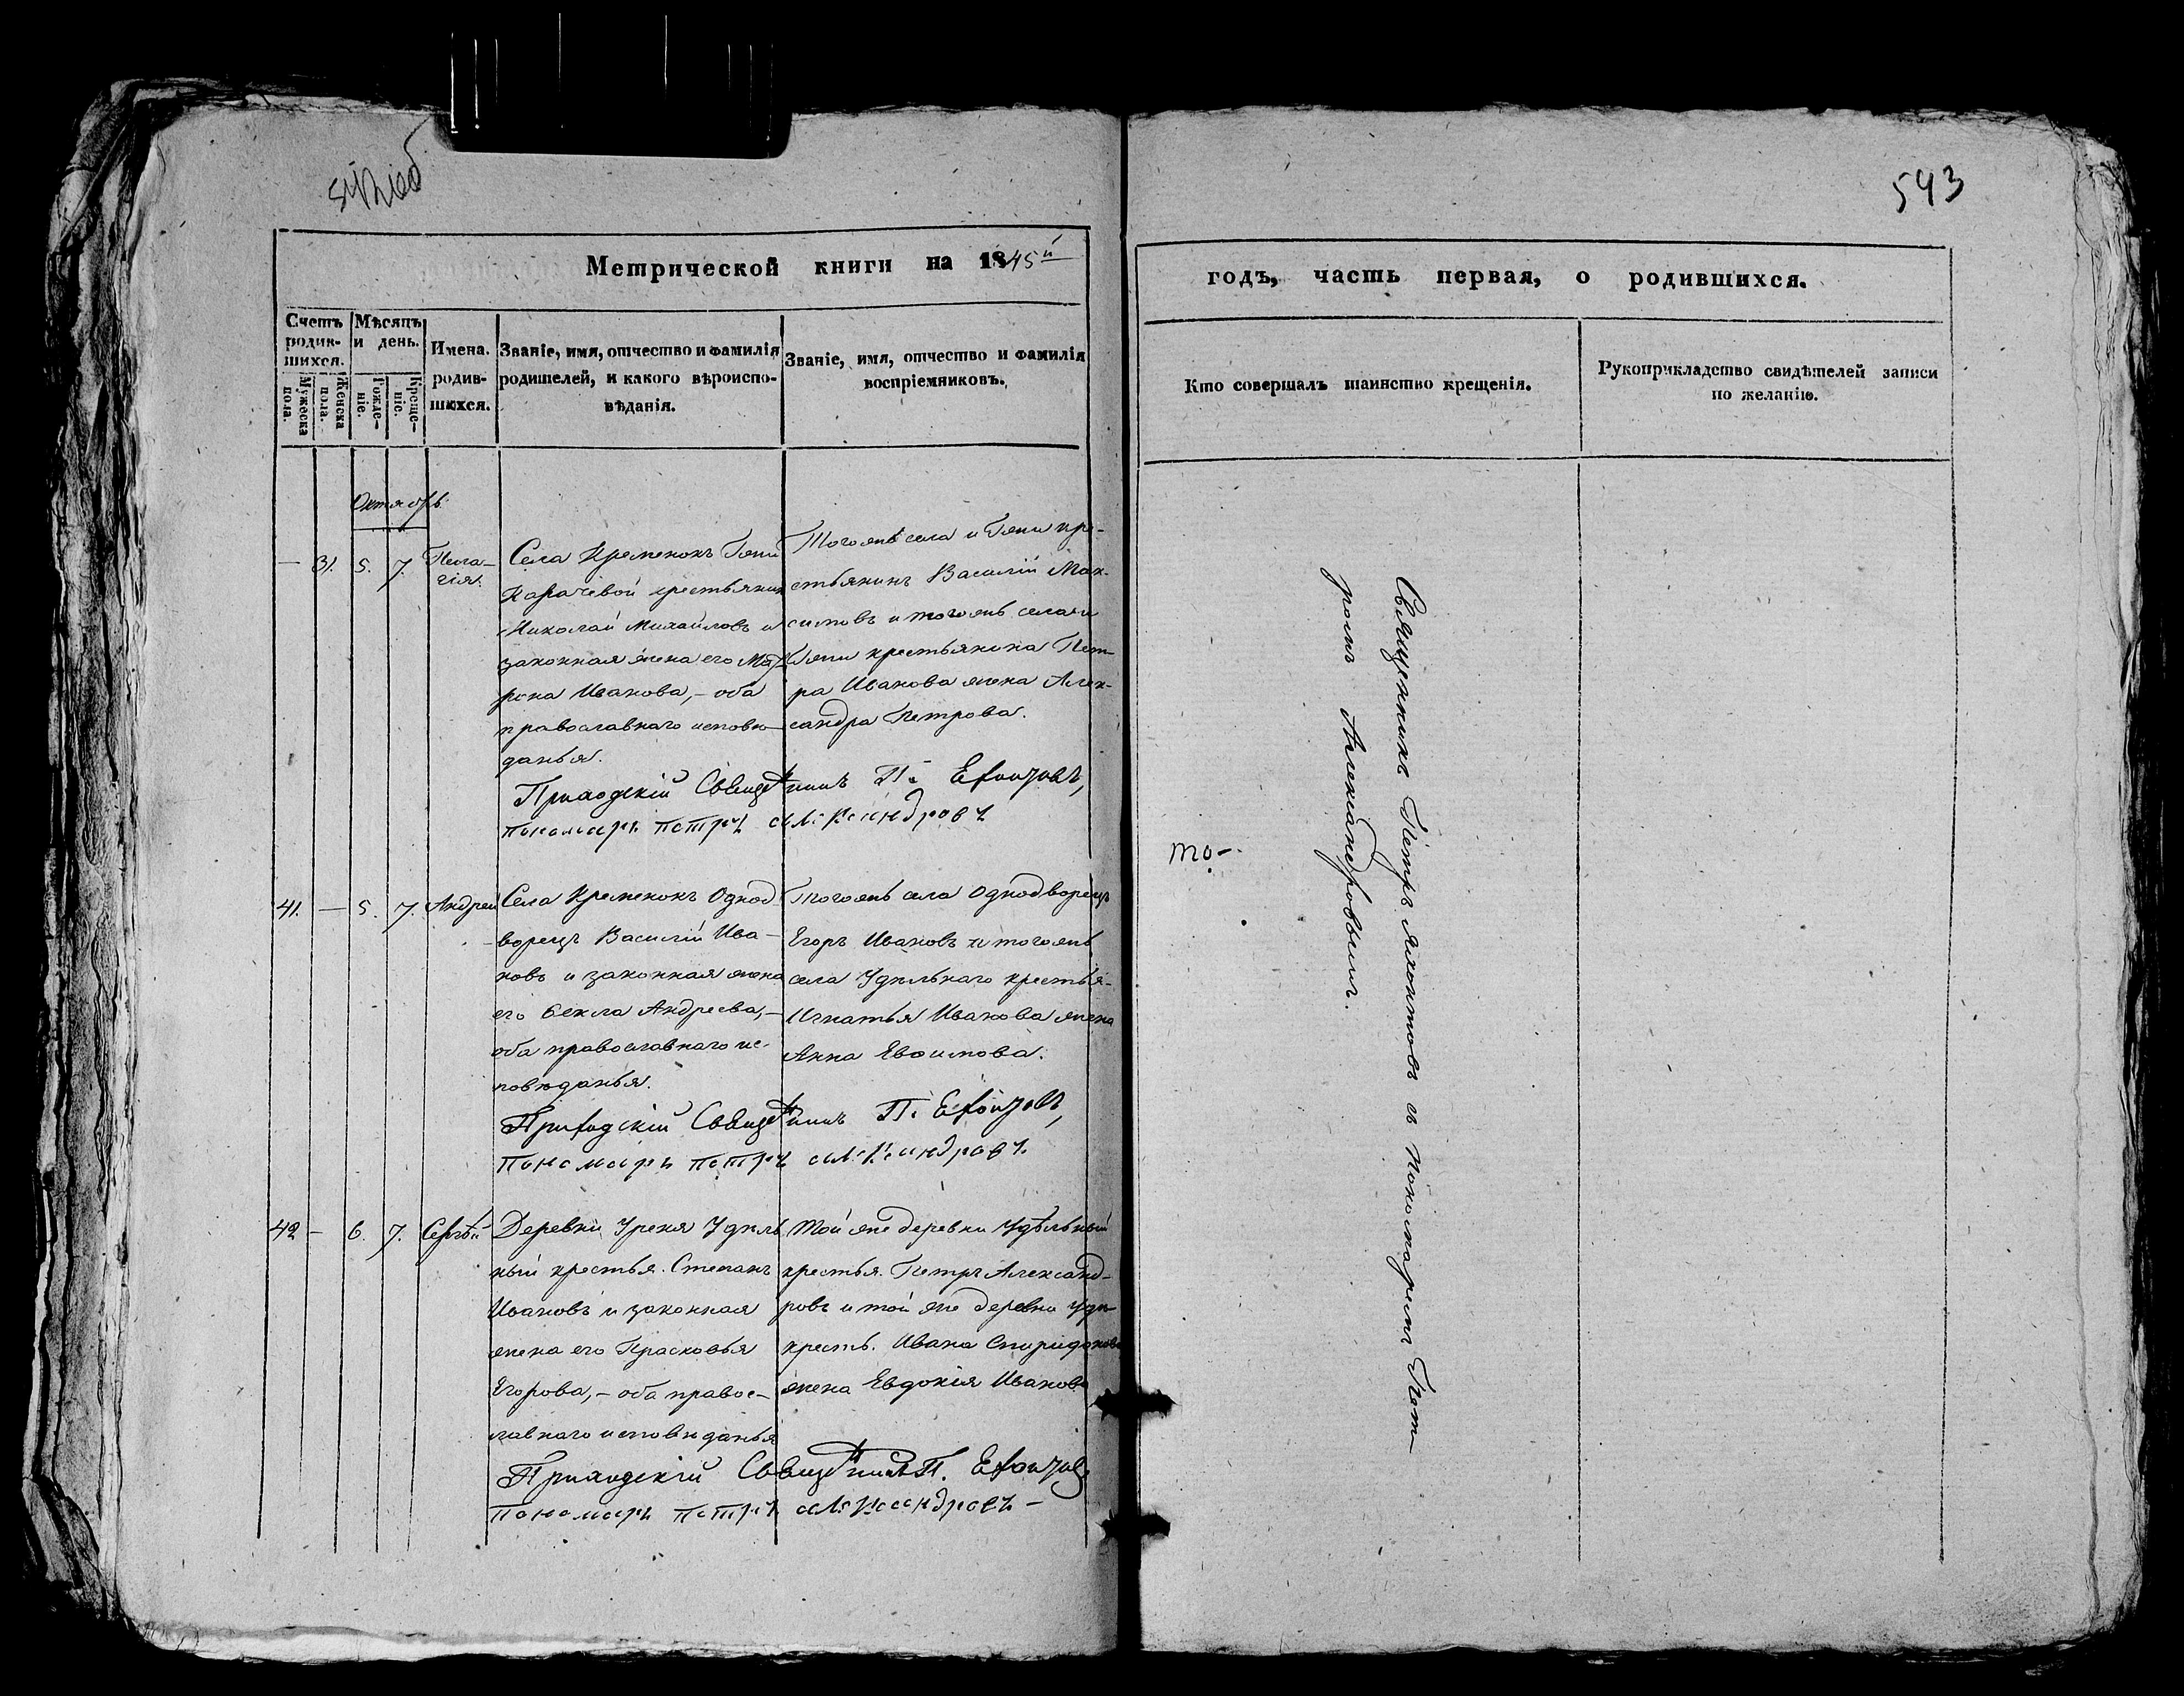 543
Метрической книги на 1845й
годъ, часть первая, о родившихся.
Счетъ родив-
шихся.
Мужеска пола.
Женска пола.
Мѣсяцъ
и день.
Рожде-
ніе.
Креще-
ніе.
Имена.
родив-
шихся.
Званіе, имя, отчество и фамилія
родителей, и какого вѣроиспо-
вѣданія.
Званіе, имя, отчество и фамилія
воспріемниковъ.
Кто совершалъ таинство крещенія.
Рукоприкладство свидѣтелей записи
по желанію.
Октябрь
— 31. 5. 7. Пела-
гія.
Села Кременокъ Гпжи
Карачевой крестьянинъ
Николай Михайловъ и
законная жена его Мат-
рена Иванова, — оба
православнаго исповѣ-
данья.
Тогожъ села и Гпжи кре-
стьянинъ Василій Мак-
симовъ и тогожъ села и
Гпжи крестьянина Пет-
ра Иванова жена Алек-
сандра Петрова.
Приходскій Священникъ П.
пономарь петръ александровъ
41. — 5. 7. Андрей
Села Кременокъ Однод-
ворецъ Василій Ива-
новъ и законная жена
его Ѳекла Андреева, —
оба православнаго ис-
повѣданья.
Тогожъ села Однодворецъ
Егоръ Ивановъ и тогожъ
села Удѣльнаго крестья-
Игнатья Иванова жена
Анна Евѳимова.
Приходскій Священникъ П.
пономарь петръ александровъ
42 — 6. 7. Сергѣй
Деревни Уреня Удѣль
ный крестья. Степанъ
Ивановъ и законная
жена его Прасковья
Егорова, — оба правос-
лавнаго исповѣданья
Той же деревни Удѣльный
крестья. Петръ Александ-
ровъ и той же деревни Удѣ-
кресть. Ивана Спиридонова
жена Евдокія Иванова
Приходскій Священникъ П.
пономарь петръ александровъ —
то —
Священникъ Петръ Яхонтовъ съ пономаремъ Пет-
ромъ Александровымъ.